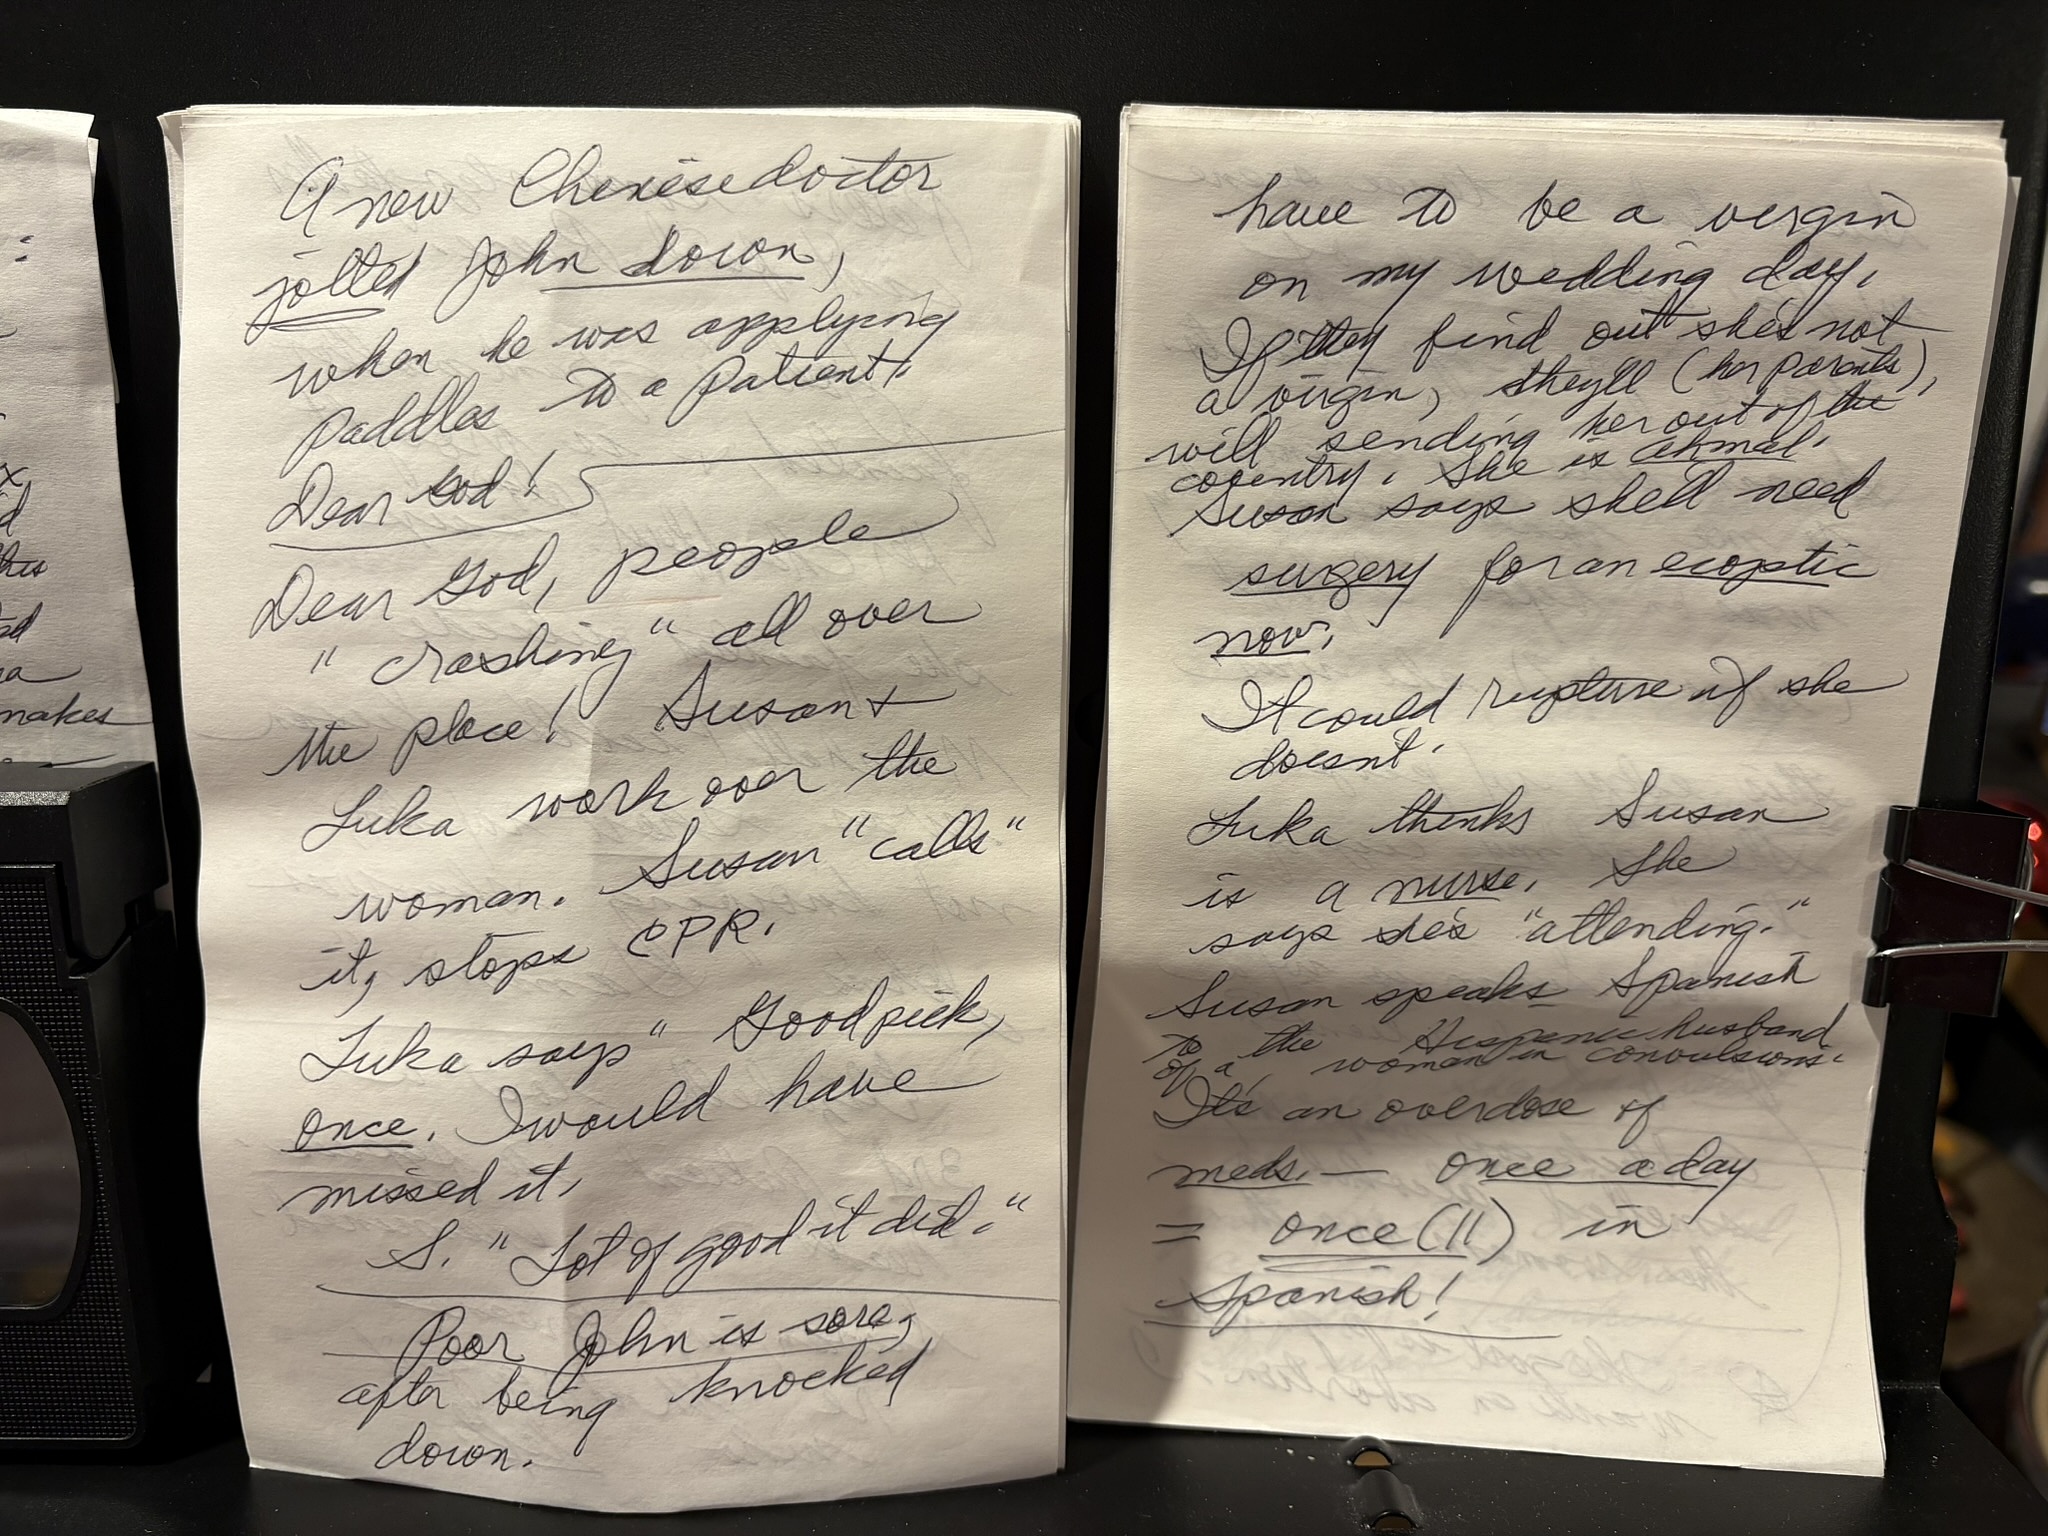 :
x,
d
this
a
makes
A new Chenese doctor
jolted John down,
when he was applying
paddles to a patient.
Dear God!
Dear God, people
"crashing" all over
the place! Susan +
Luka work over the
woman. Susan "calls"
it, stops CPR.
Luka says "Good pick,
once. I would have
missed it.
S. "Lot of good it did."
Poor John is sore,
after being knocked
down.
have to be a virgin
on my wedding day.
If they find out she's not
a virgin, they'll (her parents),
will sending her out of the
country. She is
Susan says she'll need
surgery for an ecoptic
now.
It could rupture if she
doesn't.
Luka thinks Susan
is a nurse. She
says she's "attending."
Susan speaks Spanish
to the Hispanic husband
of a woman in convulsions.
It's an overdose of
meds. — once a day
= once (11) in
Spanish!